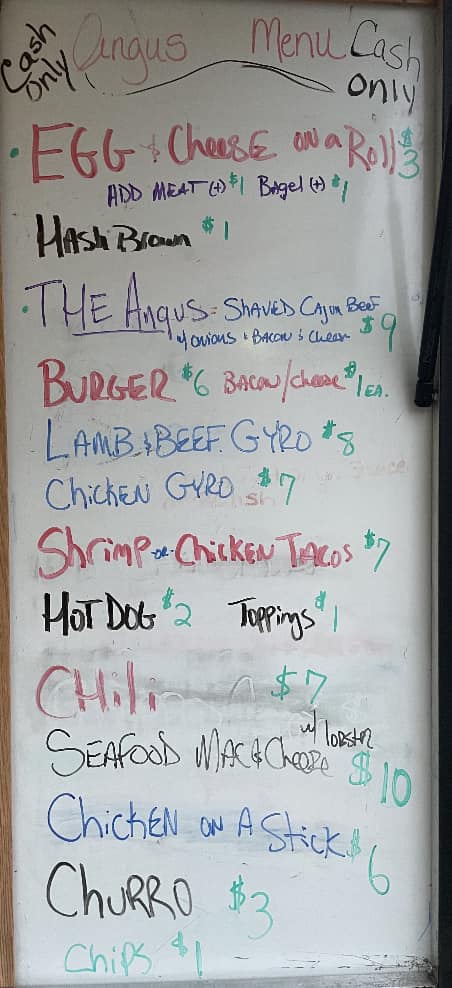 Cash Only
Angus Menu
Cash Only
EGG & CheesE on a Roll $3
ADD MEAT (+) $1 Bagel (+) $1
Hash Brown $1
THE Angus = SHAVED Cajun Beef
w/ onions & Bacon & Cheese $9
BURGER $6 BACON/cheese $1 EA.
LAMB & BEEF GYRO $8
ChickEN GYRO $7
Shrimp or ChickEN TACOS $7
HOT DOG $2 Toppings $1
CHili $7
w/ lobster
SEAFOOD MAC & Cheese $10
ChickEN ON A Stick $6
ChURRO $3
Chips $1